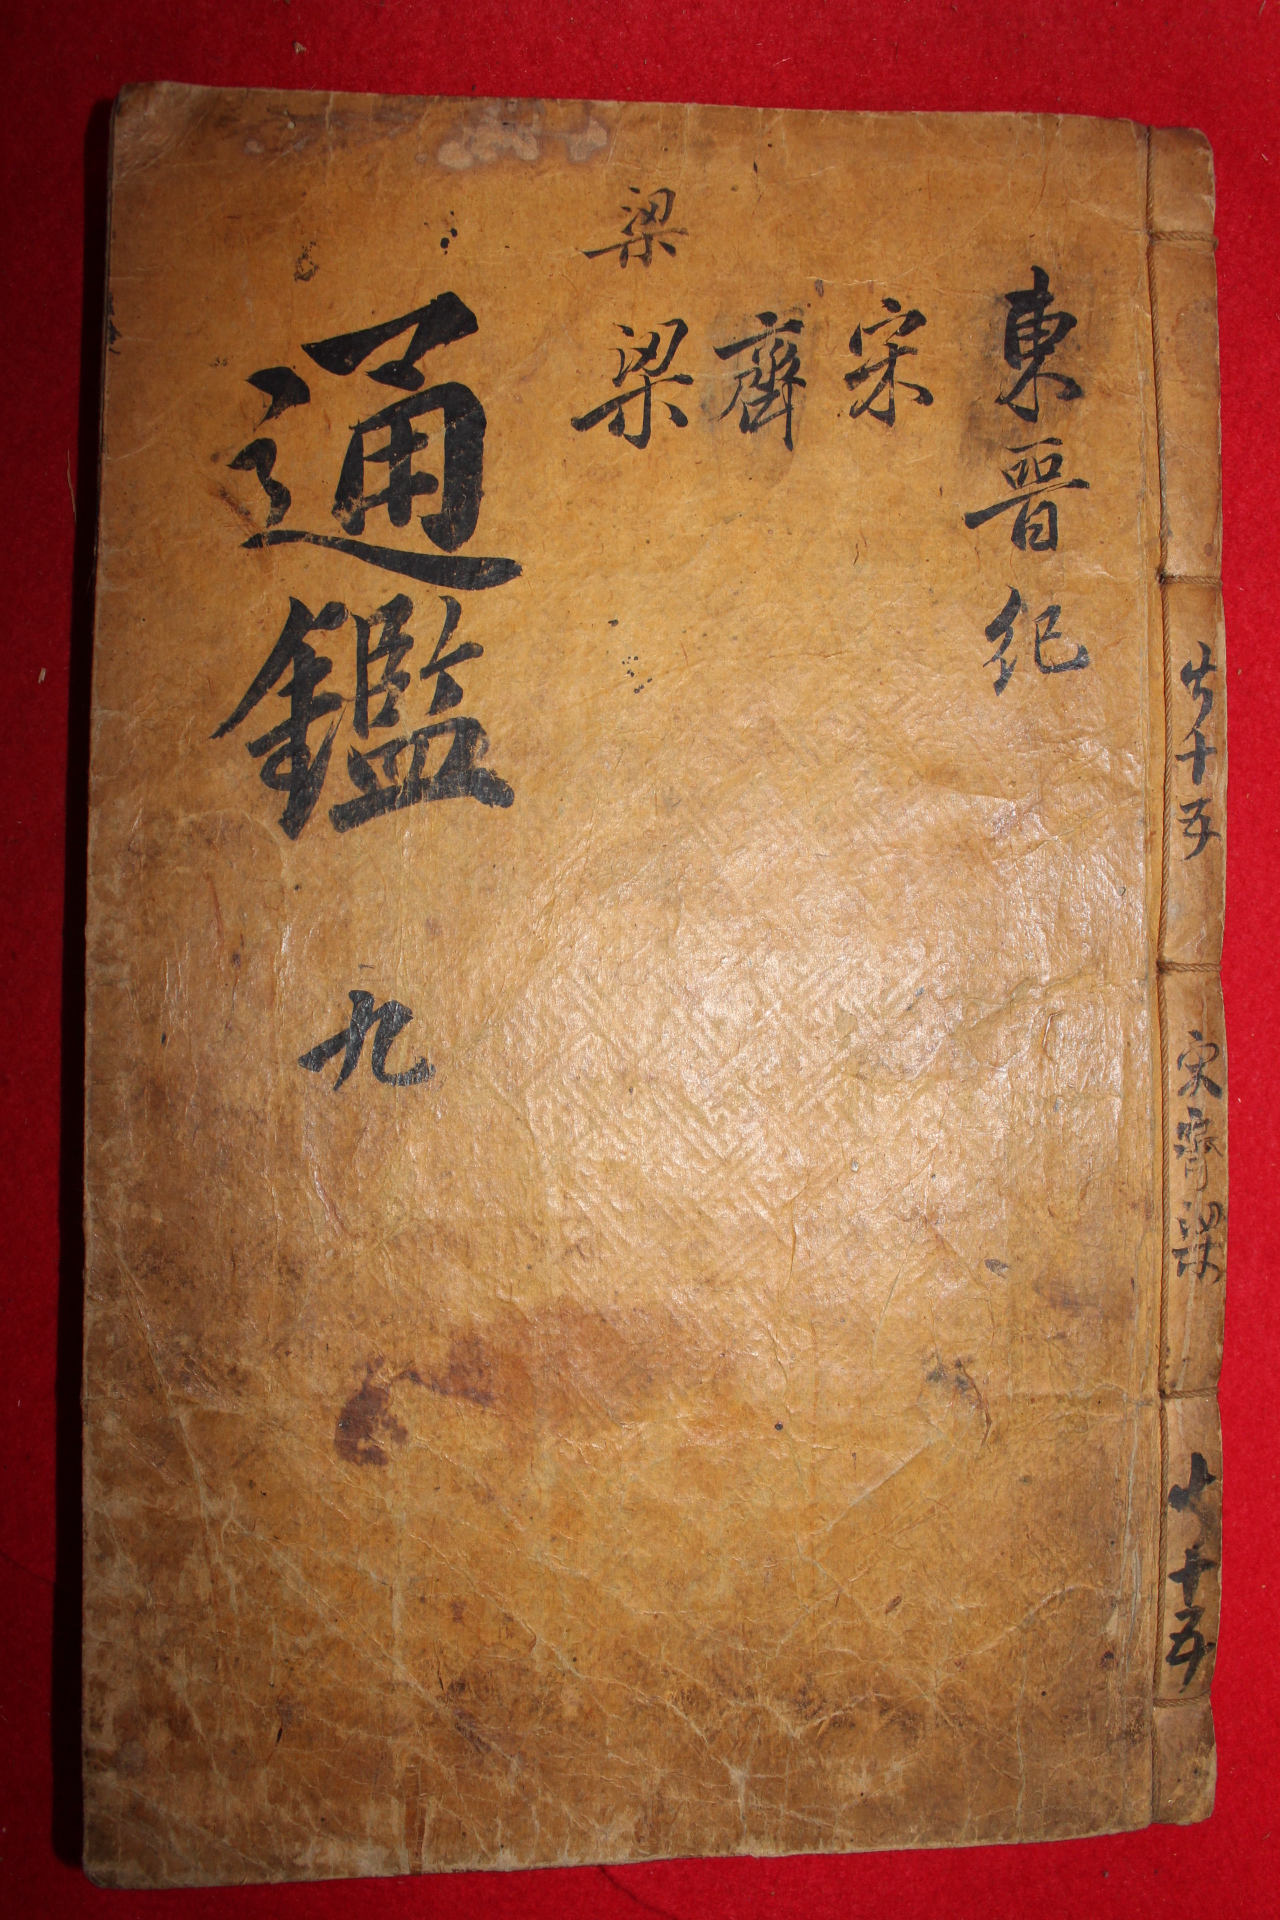 東晋紀
宋
齊
梁
梁
通鑑
九
共十五
宋齊梁
共十五